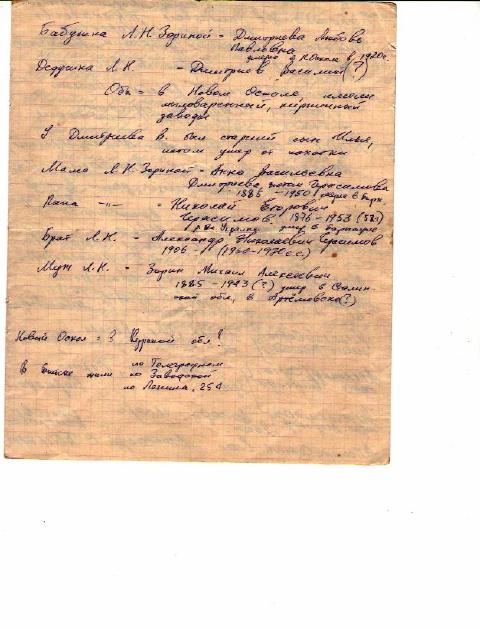 Бабушка Л.Н. Зориной - Дмитриева Любовь
Павловна
умерла в 1920г.
Дедушка Л.Н. - Дмитриев Василий (?)
Оба = в Новом Осколе имели
мыловаренный, кирпичный
заводы
У Дмитриева В. был старший сын Илья,
потом умер от чахотки
Мама Л.Н. Зориной - Анна Васильевна
Дмитриева, потом Герасимова
1885 - 1950 умерла в
Папа -"- - Николай Егорович
Герасимов. 1876 - 1953
умер в
Брат Л.Н. - Александр Николаевич Герасимов
1906 -
Муж Л.Н. - Зорин Михаил Алексеевич
1885 - 1943 (?) умер в Сталин-
ской обл., в Артёмовске(?)
Новый Оскол = в Курской обл?
по Телеграфной
В жили по Заводской
по Ленина, 25